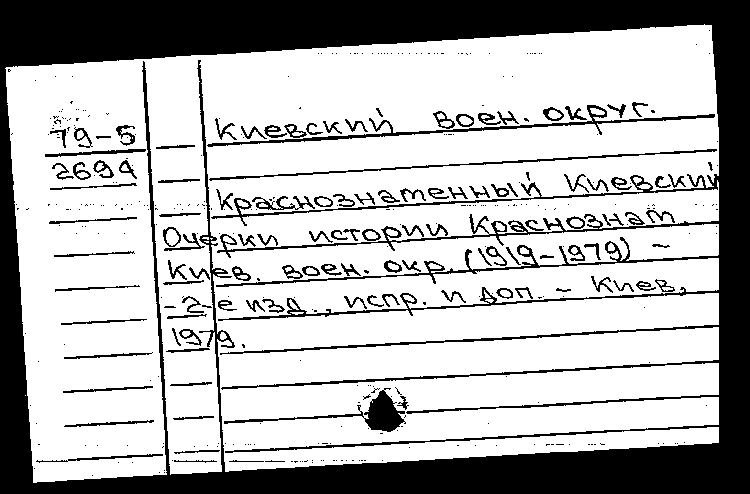 79-5
2694
Киевский воен. округ.
Краснознаменный Киевский
Очерки истории Краснознам.
Киев. воен. окр. (1919-1979) -
-2-е изд., испр. и доп. - Киев,
1979.